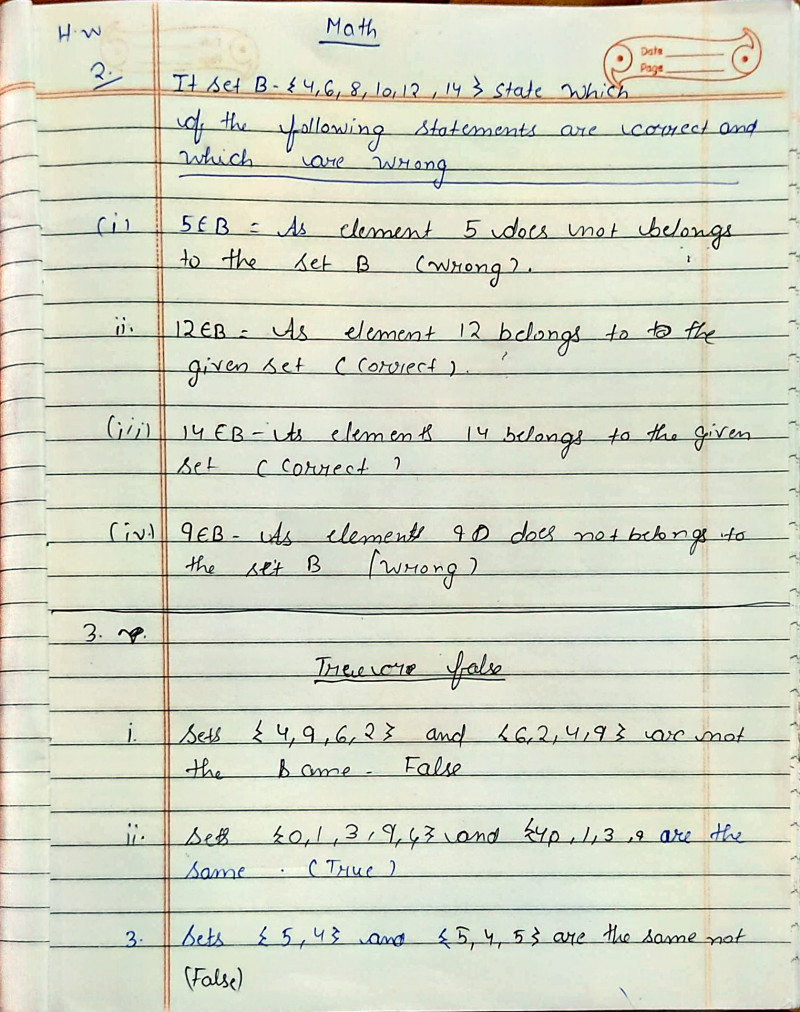 H.W
Math
Date
Page
2.
If set B - {4, 6, 8, 10, 12, 14} state which
of the following statements are correct and
which are wrong
(i) 5∈B = As element 5 does not belongs
to the set B (wrong).
ii. 12∈B = As element 12 belongs to to the
given set (Correct).
(iii) 14∈B - As elements 14 belongs to the given
set (Correct)
(iv) 9∈B - As elements 9 does not belongs to
the set B (wrong)
3.
True or false
i. Sets {4, 9, 6, 2} and {6, 2, 4, 9} are not
the same - False
ii. Sets {0, 1, 3, 9, 4} and {4, 0, 1, 3, 9 are the
same. (True)
3. Sets {5, 4} and {5, 4, 5} are the same not
(False)